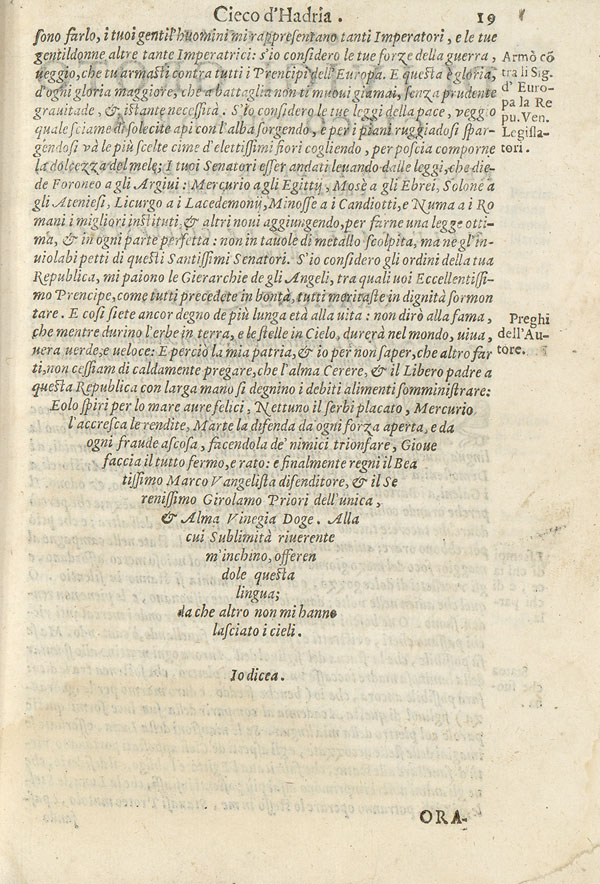 Cieco d'Hadria. 19
sono farlo, i tuoi gentil'huomini mi rappresentano tanti Imperatori, e le tue
gentildonne altre tante Imperatrici: s'io considero le tue forze della guerra,
veggio, che tu armasti contra tutti i Prencipi dell'Europa. E questa è gloria,
d'ogni gloria maggiore, che a battaglia non ti muoui giamai, senza prudente
grauitade, & istante necessità. S'io considero le tue leggi della pace, veggio
quale sciame di solecite api con l'alba sorgendo, e per i piani ruggiadosi spar-
gendosi và le più scelte cime d'elettissimi fiori cogliendo, per poscia comporne
la dolcezza del mele; I tuoi Senatori esser andati leuando dalle leggi, che die-
de Foroneo a gli Argiui: Mercurio a gli Egittij, Mosè a gli Ebrei, Solone a
gli Ateniesi, Licurgo a i Lacedemonij, Minosse a i Candiotti, e Numa a i Ro
mani i migliori instituti, & altri noui aggiungendo, per farne una legge otti-
ma, & in ogni parte perfetta: non in tauole di metallo scolpita, ma ne gl'in-
uiolabi petti di questi Santissimi Senatori. S'io considero gli ordini della tua
Republica, mi paiono le Gierarchie de gli Angeli, tra quali uoi Eccellentissi-
mo Prencipe, come tutti precedete in bontà, tutti meritaste in dignità sormon
tare. E cosi siete ancor degno de più lunga età alla uita: non dirò alla fama,
che mentre durino l'erbe in terra, e le stelle in Cielo, durerà nel mondo, uiua,
uera uerde, e ueloce: E perciò la mia patria, & io per non saper, che altro far
ti, non cessiam di caldamente pregare, che l'alma Cerere, & il Libero padre a
questa Republica con larga mano si degnino i debiti alimenti somministrare:
Eolo spiri per lo mare aure felici, Nettuno il serbi placato, Mercurio
l'accresca le rendite, Marte la difenda da ogni forza aperta, e da
ogni fraude ascosa, facendola de' nimici trionfare, Gioue
faccia il tutto fermo, e rato: e finalmente regni il Bea
tissimo Marco Vangelista difenditore, & il Se
renissimo Girolamo Priori dell'unica,
& Alma Vinegia Doge. Alla
cui Sublimità riuerente
m'inchino, offeren
dole questa
lingua;
da che altro non mi hanno
lasciato i cieli.
Io dicea.
ORA-
Armò cō
tra li Sig.
d' Euro-
pa la Re
pu. Ven.
Legisla-
tori.
Preghi
dell'Au-
tore.